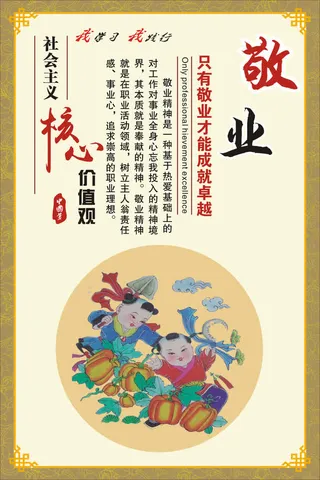 我学习 我践行
社会主义
核心
价值观
中国梦
敬业
只有敬业才能成就卓越
Only professional hievement excellence
敬业精神是一种基于热爱基础上的
对工作对事业全身心忘我投入的精神境
界，其本质就是奉献的精神。敬业精神
就是在职业活动领域，树立主人翁责任
感、事业心，追求崇高的职业理想。